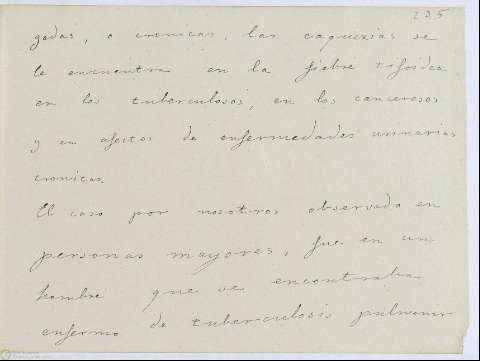 205
gadas, o cronicas, las caquexias se
le encuentra en la fiebre tifoidea
en los tuberculosos, en los cancerosos
y en afectos de enfermedades urinarias
cronicas.
El caso por nosotros observado en
personas mayores, fue en un
hombre que se encontraba
enfermo de tuberculosis pulmonar